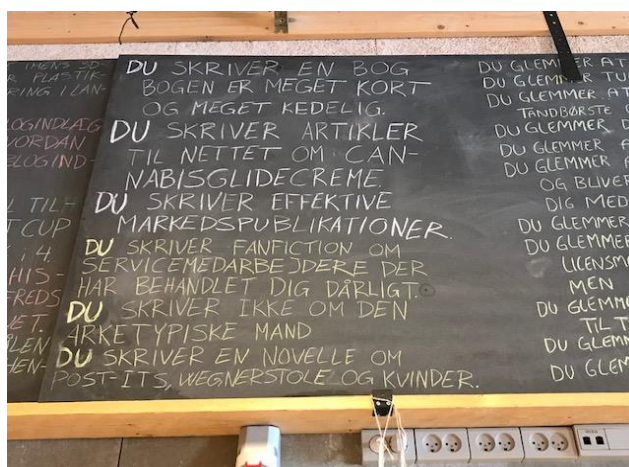 THENS 3D-
PLASTIK-
RING I LAN-
LOGINDLÆG
VORDAN
BLOGIND-
TIL-
T CUP
I 4.
HIS-
FREDS
NET.
ÅLEN
HEN-
DU SKRIVER EN BOG
BOGEN ER MEGET KORT
OG MEGET KEDELIG.
DU SKRIVER ARTIKLER
TIL NETTET OM CAN-
NABISGLIDECREME.
DU SKRIVER EFFEKTIVE
MARKEDSPUBLIKATIONER.
DU SKRIVER FANFICTION OM
SERVICEMEDARBEJDERE DER
HAR BEHANDLET DIG DÅRLIGT.
DU SKRIVER IKKE OM DEN
ARKETYPISKE MAND
DU SKRIVER EN NOVELLE OM
POST-ITS, WEGNERSTOLE OG KVINDER.
DU GLEMMER AT
DU GLEMMER TU
DU GLEMMER AT
TANDBØRSTE
DU GLEMMER D
DU GLEMMER A
DU GLEMMER A
OG BLIVER
DIG MED
DU GLEMMER
DU GLEMMER
LICENSM
MEN
DU GLEMME
TIL T
DU GLEMM
DU GLEM